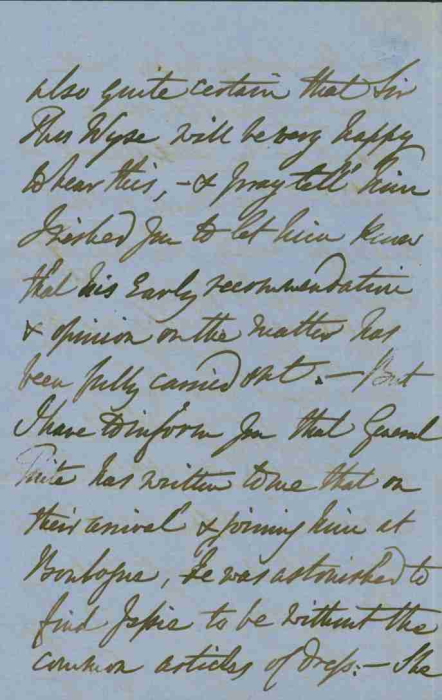 also quite certain that Sir
Thos Wyse will be very happy
to hear this, - & pray tell him
I wished you to let him know
that his early recommendation
& opinion on the matter has
been fully carried out. - But
I have to inform you that General
has written to me that on
their arrival & joining him at
Boulogne, he was astonished to
find Jessie to be without the
common articles of Dress: - She